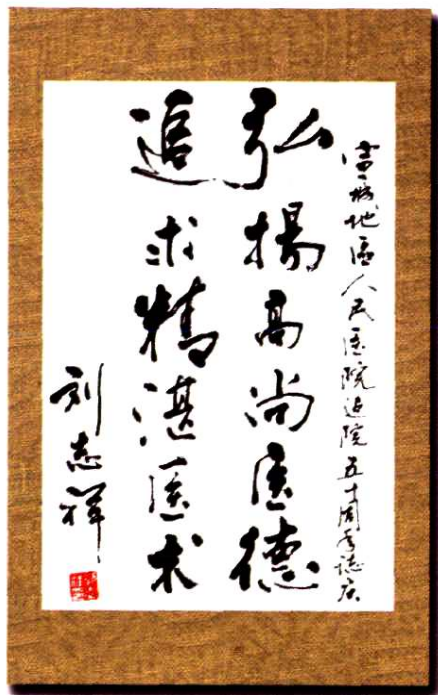 地区人民医院建院五十周年誌庆
弘揚高尚医德
追求精湛医术
刘志祥